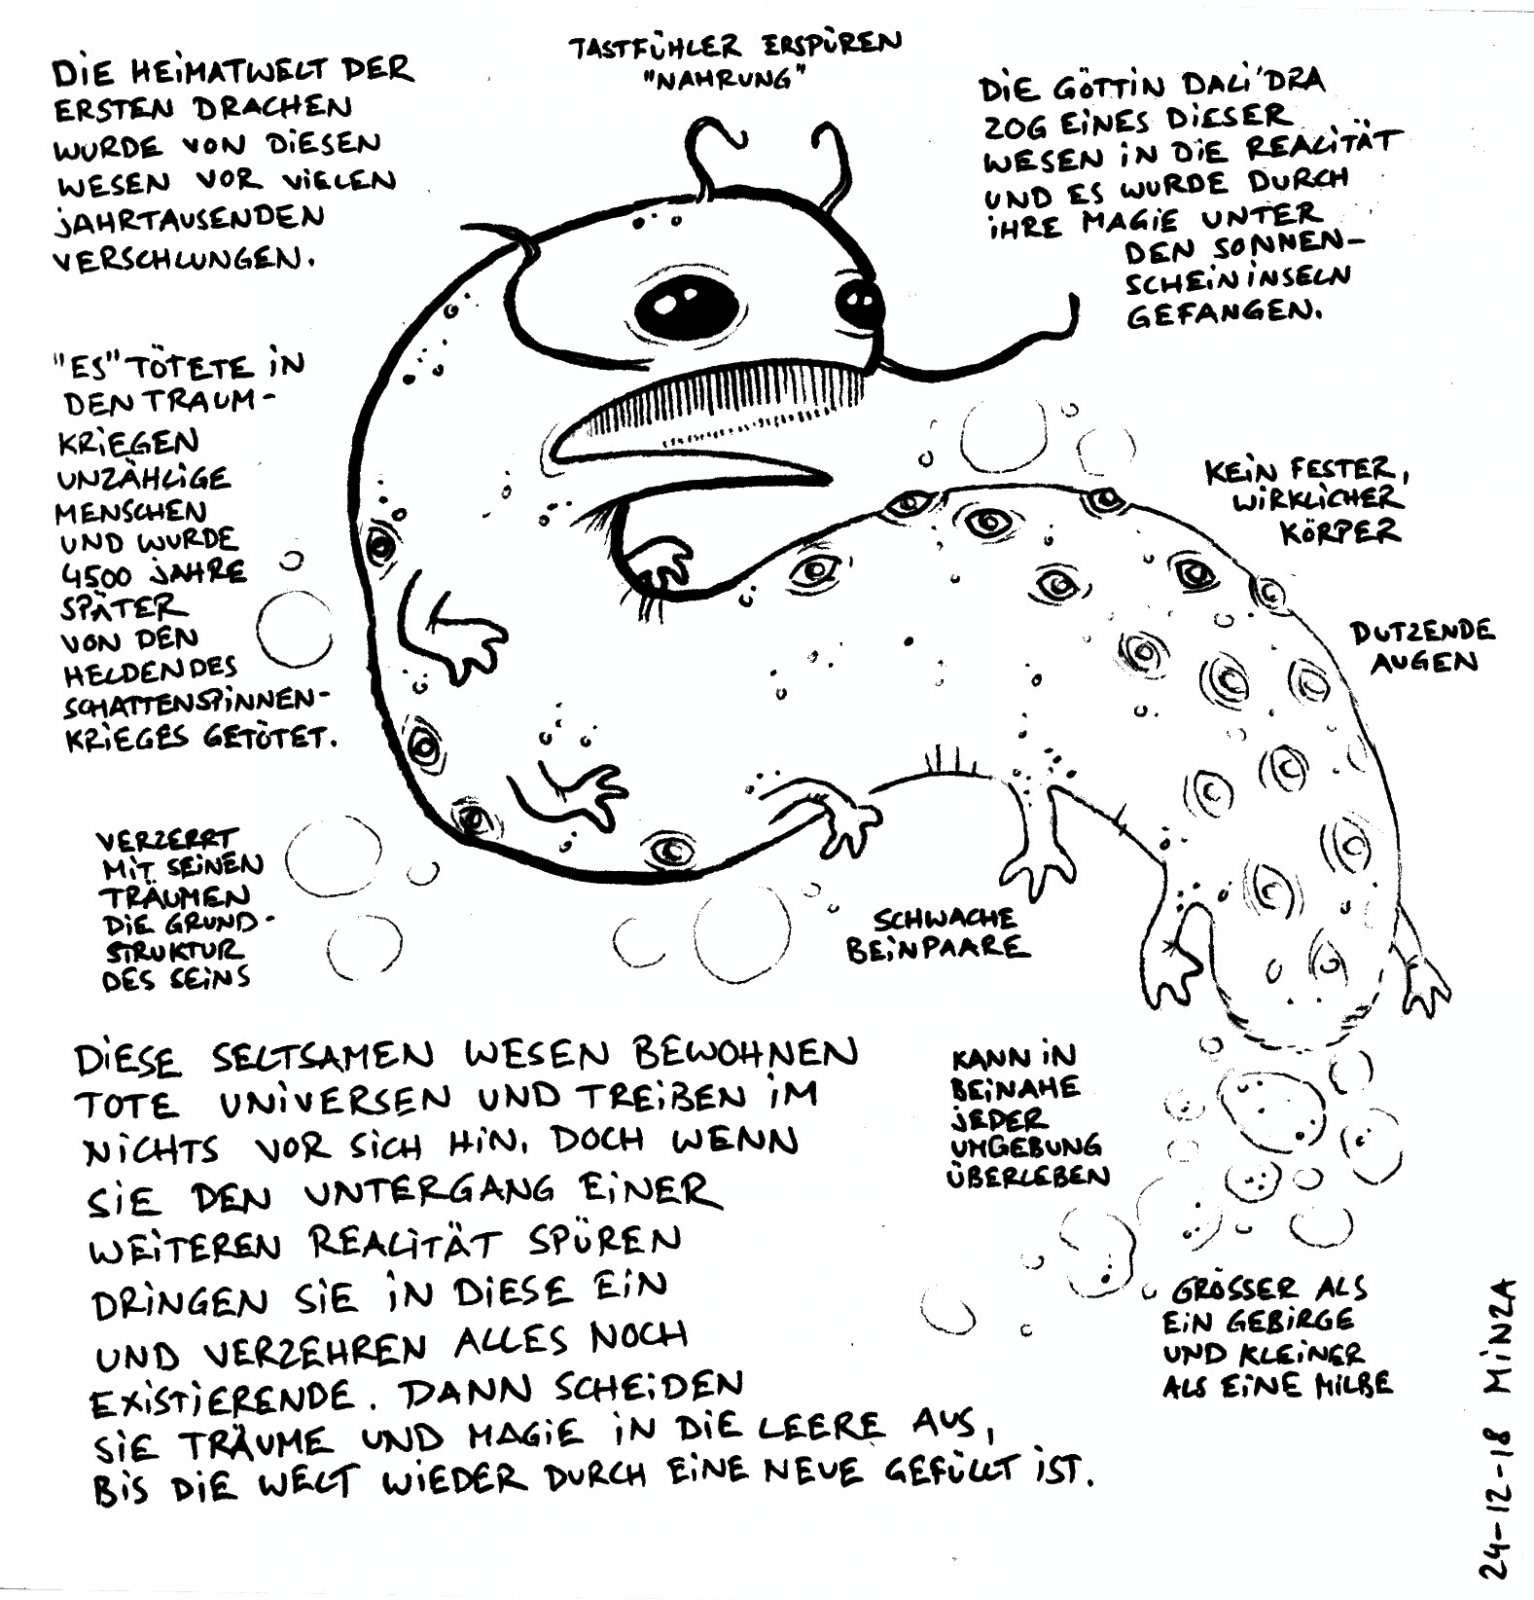 DIE HEIMATWELT DER
ERSTEN DRACHEN
WURDE VON DIESEN
WESEN VOR VIELEN
JAHRTAUSENDEN
VERSCHLUNGEN.
TASTFÜHLER ERSPÜREN
"NAHRUNG"
DIE GÖTTIN DALI'DRA
ZOG EINES DIESER
WESEN IN DIE REALITÄT
UND ES WURDE DURCH
IHRE MAGIE UNTER
DEN SONNEN-
SCHEININSELN
GEFANGEN.
"ES" TÖTETE IN
DEN TRAUM-
KRIEGEN
UNZÄHLIGE
MENSCHEN
UND WURDE
4500 JAHRE
SPÄTER
VON DEN
HELDEN DES
SCHATTENSPINNEN-
KRIEGES GETÖTET.
KEIN FESTER,
WIRKLICHER
KÖRPER
DUTZENDE
AUGEN
VERZERRT
MIT SEINEN
TRÄUMEN
DIE GRUND-
STRUKTUR
DES SEINS
SCHWACHE
BEINPAARE
DIESE SELTSAMEN WESEN BEWOHNEN
TOTE UNIVERSEN UND TREIBEN IM
NICHTS VOR SICH HIN. DOCH WENN
SIE DEN UNTERGANG EINER
WEITEREN REALITÄT SPÜREN
DRINGEN SIE IN DIESE EIN
UND VERZEHREN ALLES NOCH
EXISTIERENDE. DANN SCHEIDEN
SIE TRÄUME UND MAGIE IN DIE LEERE AUS,
BIS DIE WELT WIEDER DURCH EINE NEUE GEFÜLLT IST.
KANN IN
BEINAHE
JEDER
UMGEBUNG
ÜBERLEBEN
GRÖSSER ALS
EIN GEBIRGE
UND KLEINER
ALS EINE MILBE
24-12-18 MINZA